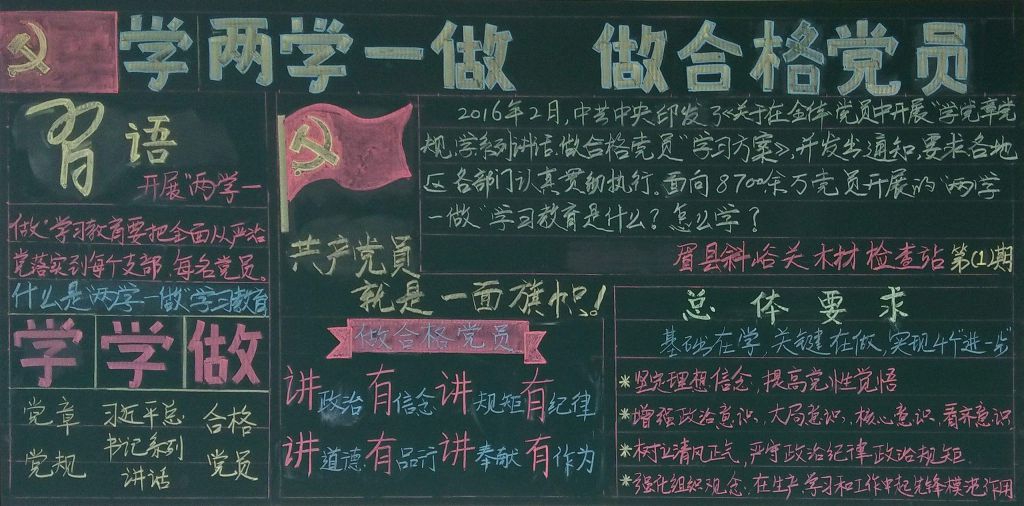 学两学一做 做合格党员
习语
开展"两学一
做"学习教育要把全面从严治
党落实到每个支部、每名党员。
什么是"两学一做"学习教育
学 学 做
党章 党规
习近平总书记系列讲话
合格党员
共产党员
就是一面旗帜!
2016年2月,中共中央办发了《关于在全体党员中开展"学党章党
规、学系列讲话,做合格党员"学习方案》,并发出通知,要求各地
区各部门认真贯彻执行。面向8700余万党员开展的"两学
一做"学习教育是什么?怎么学?
眉县斜峪关木材检查站 第(1)期
做合格党员
讲政治 有信念 讲规矩 有纪律
讲道德 有品行 讲奉献 有作为
总体要求
基础在学,关键在做,实现4个"进一步"
*坚定理想信念,提高党性觉悟
*增强政治意识、大局意识、核心意识、看齐意识
*树立清风正气,严守政治纪律政治规矩
*强化组织观念,在生产学习和工作中起先锋模范作用